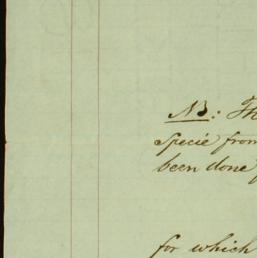 NB: Th
Specie from
been done
for which